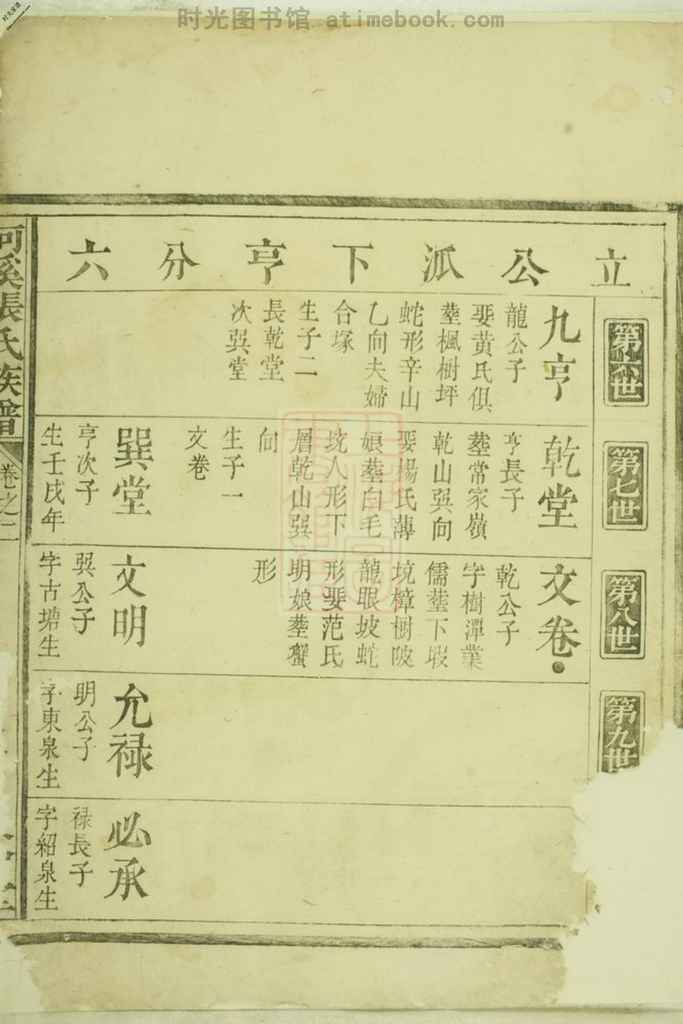 时光图书馆 atimebook.com
立公派下亨分六
第六世
九亨
龍公子
娶黄氏俱
塟楓樹坪
蛇形辛山
乙向夫婦
合塚
生子二
長乾堂
次巽堂
第七世
乾堂
亨長子
塟常家嶺
乾山巽向
娶楊氏薄
娘塟白毛
垅人形下
層乾山巽
向
生子一
文卷
巽堂
亨次子
生壬戌年
第八世
文卷
乾公子
字樹潭業
儒塟下塅
境樟樹陂
龍眼坡蛇
形娶范氏
明娘塟蟹
形
文明
巽公子
字古塘生
第九世
允禄
明公子
字東泉生
必承
禄長子
字紹泉生
河溪張氏族譜
卷之二